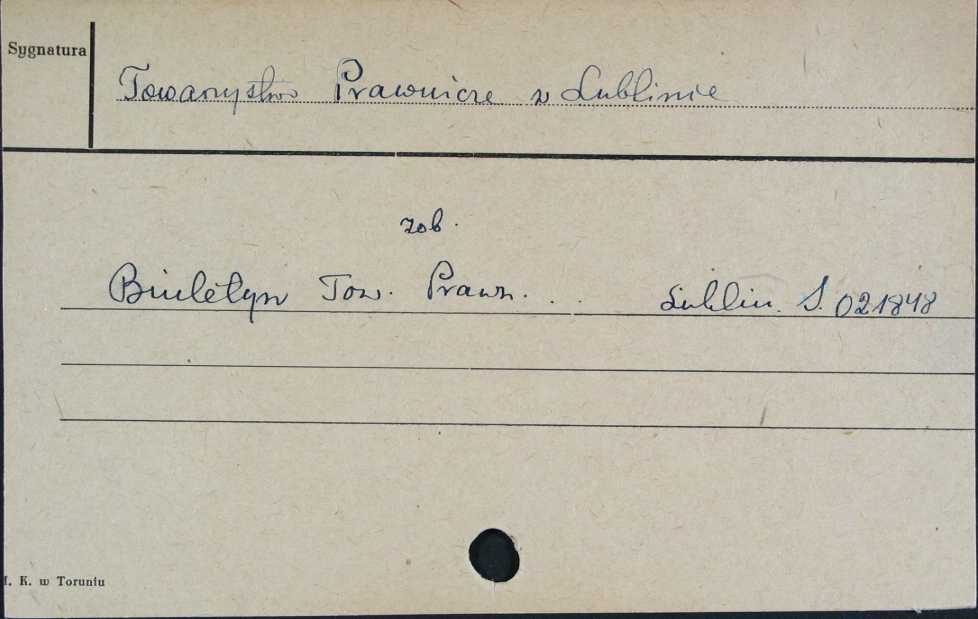 Sygnatura
Towarzystwo Prawnicze w Lublinie
zob.
Biuletyn Tow. Prawn. . . Lublin. S. 021848
K. w Toruniu